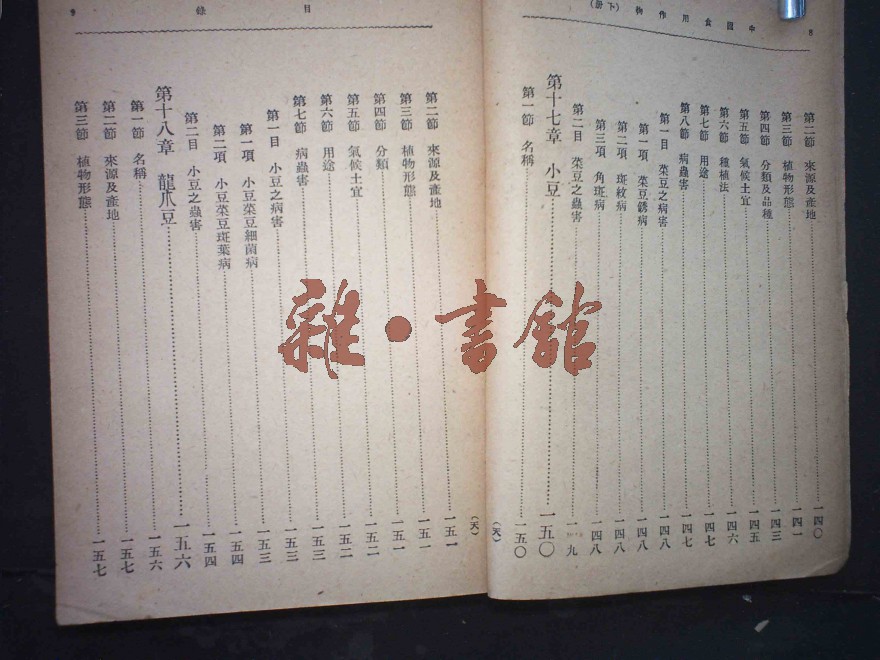 8 中國食用作物（下册）
第二節 來源及產地……一四〇
第三節 植物形態……一四一
第四節 分類及品種……一四三
第五節 氣候土宜……一四五
第六節 種植法……一四六
第七節 用途……一四七
第八節 病蟲害……一四七
第一目 菜豆之病害……一四八
第一項 菜豆銹病……一四八
第二項 斑紋病……一四八
第三項 角斑病……一四八
第二目 菜豆之蟲害……一 九
第十七章 小豆……一五〇
第一節 名稱……一五〇
（天）
目錄 9
第二節 來源及產地……一五一
第三節 植物形態……一五一
第四節 分類……一五一
第五節 氣候土宜……一五二
第六節 用途……一五二
第七節 病蟲害……一五三
第一目 小豆之病害……一五三
第一項 小豆菜豆細菌病……一五三
第二項 小豆菜豆斑葉病……一五四
第二目 小豆之蟲害……一五四
第十八章 龍爪豆……一五六
第一節 名稱……一五六
第二節 來源及產地……一五七
第三節 植物形態……一五七
（天）
雜·書館